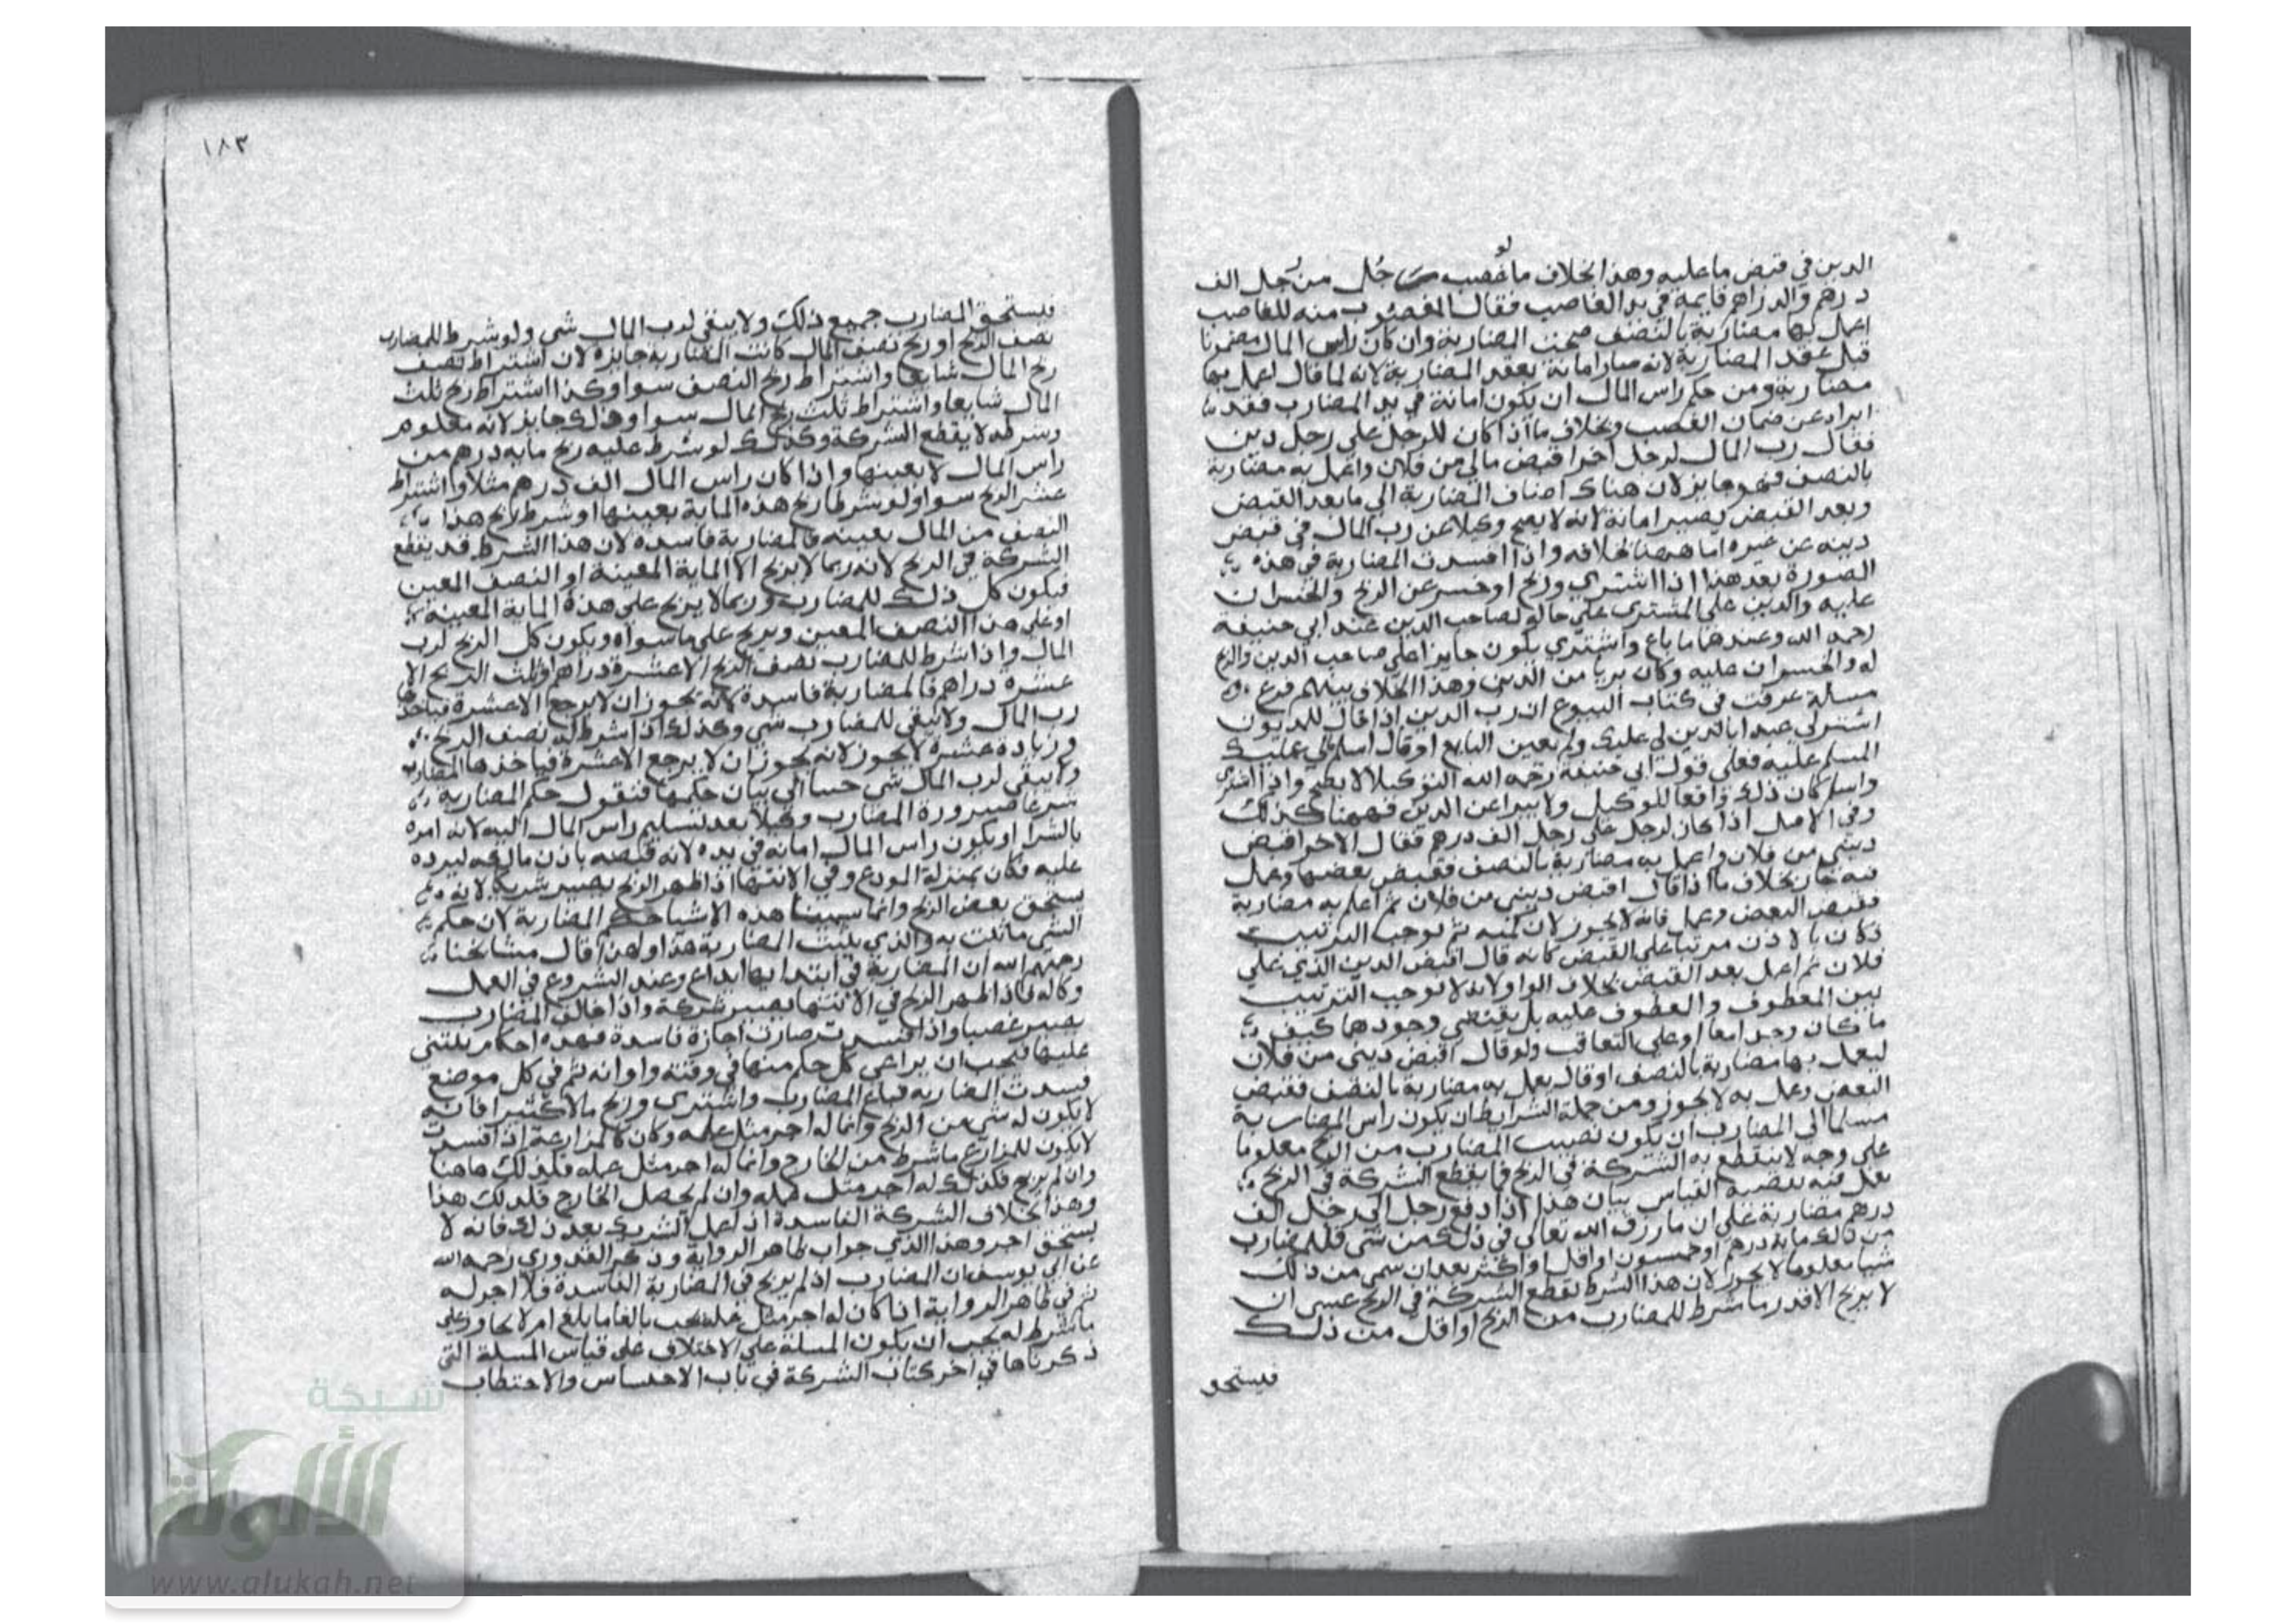 لو
الدين في قبض ما عليه وهذا بخلاف ما غصب رجل من رجل الف
درهم والدراهم قايمة في يد الغاصب فقال المغصوب منه للغاصب
اعمل بها مضاربة بالنصف صحت المضاربة وان كان راس المال مضمونا
قبل عقد المضاربة لانه صار امانة بعقد المضاربة لانه لما قال اعمل بها
مضاربة ومن حكم راس المال ان يكون امانة في يد المضارب فقد
ابراه عن ضمان الغصب وبخلاف ما اذا كان للرجل على رجل دين
فقال رب المال لرجل اخر اقبض مالي من فلان واعمل به مضاربة
بالنصف فهو جايز لان هناك اضاف المضاربة الي ما بعد القبض
وبعد القبض يصير امانة لانه لا يصح وكيلا عن رب المال في قبض
دينه عن غيره اما ههنا بخلافه واذا افسدت المضاربة في هذه
الصورة بعد هذا اذا اشتري وربح او خسر عن الربح والخسران
عليه والدين على المشترى علي حاله لصاحب الدين عند ابي حنيفة
رحمه الله وعندهما ما باع واشتري يكون جايزا علي صاحب الدين والربح
له والخسران عليه وكان بريا من الدين وهذا الخلاف بينهم فرع
مسألة عرفت في كتاب البيوع ان رب الدين اذا قال للمديون
اشتر لي عبدا بالدين لي عليك ولم يعين البايع او قال اسلم مالي عليك
المسلم عليه فعلي قول ابي حنيفة رحمه الله التوكيل لا يصح واذا اشترى
واسلم كان ذلك واقعا للوكيل ولا يبرا عن الدين فههنا كذلك
وفي الاصل اذا كان لرجل علي رجل الف درهم فقال لاخر اقبض
ديني من فلان واعمل به مضاربة بالنصف فقبض بعضها وعمل
فيه جاز بخلاف ما اذا قال اقبض ديني من فلان ثم اعمل به مضاربة
فقبض البعض وعمل فانه لا يجوز لان كلمة ثم توجب الترتيب
فكان بالاذن مرتبا على القبض كانه قال اقبض الدين الذي علي
فلان ثم اعمل بعد القبض بخلاف الواو لانه لا يوجب الترتيب
بين المعطوف والمعطوف عليه بل يقتضي وجودها كيف
ما كان وجد امعا او على التعاقب ولو قال اقبض ديني من فلان
ليعمل بها مضاربة بالنصف او قال يعمل به مضاربة بالنصف فقبض
البعض وعمل به لا يجوز ومن جملة الشرايط ان يكون راس المضاربة
مسلما الى المضارب ان يكون نصيب المضارب من الربح معلوما
على وجه لا ينقطع به الشركة في الربح فما يقطع الشركة في الربح
يعمل فيه بقضية القياس بيان هذا اذا دفع رجل الى رجل الف
درهم مضاربة علي ان ما رزق الله تعالى في ذلك من شي فللمضارب
من ذلك ماية درهم او خمسون او اقل او اكثر بعد ان سمى من ذلك
شيا معلوما لا يجوز لان هذا الشرط يقطع الشركة في الربح عسى ان
لا يربح الا قدر ما شرط للمضارب من الربح او اقل من ذلك
فيستحق
١٨٣
فيستحق المضارب جميع ذلك ولا يبقي لرب المال شي ولو شرط للمضارب
نصف الربح او ربح نصف المال كانت المضاربة جايزة لان اشتراط نصف
ربح المال شايعا واشتراط ربح النصف سوا وكذا اشتراط ربح ثلث
المال شايعا واشتراط ثلث ربح المال سوا وهذا كله جايز لانه معلوم
وشرطه لا يقطع الشركة وكذلك لو شرط عليه ربح ماية درهم من
راس المال لا بعينها واذا كان راس المال الف درهم مثلا واشتراط
عشر الربح سوا ولو شرطا ربح هذه الماية بعينها او شرط ربح هذا
النصف من المال بعينه فالمضاربة فاسدة لان هذا الشرط قد يقطع
الشركة في الربح لانه ربما لا يربح الا الماية المعينة او النصف المعين
فيكون كل ذلك للمضارب وربما لا يربح على هذه الماية المعينة
او علي هذا النصف المعين ويربح علي ما سواه ويكون كل الربح لرب
المال واذا شرط للمضارب نصف الربح الا عشرة دراهم او ثلث الربح الا
عشرة دراهم فالمضاربة فاسدة لانه يجوز ان لا يربح الا عشرة فياخذها
رب المال ولا يبقي للمضارب شي وكذلك اذا شرط له نصف الربح
وزيادة عشرة لا يجوز لانه يجوز ان لا يربح الا عشرة فياخذها المضارب
ولا يبقي لرب المال شي جينا الي بيان حكمها فنقول حكم المضاربة
شرعا صيرورة المضارب وكيلا بعد تسليم راس المال اليه لانه امره
بالشرا ويكون راس المال امانة في يده لانه قبضه باذن مالكه ليرده
عليه فكان بمنزلة المودع وفي الانتها اذا ظهر الربح يصير شريكا لانه
يستحق بعض الربح وانما سمينا هذه الاشيا حكم المضاربة لان حكم
الشي ما ثبت به والذي يثبت المضاربة هذا ولهذا قال مشايخنا
رحمهم الله ان المضاربة في ابتدايها ايداع وعند الشروع في العمل
وكالة فاذا ظهر الربح في الانتها يصير شركة واذا خالف المضارب
يصير غصبا واذا فسدت صارت اجارة فاسدة فهذه احكام يبتني
عليها فيجب ان يراعي كل حكم منها في وقته واوانه ثم في كل موضع
فسدت المضاربة فباع المضارب واشترى وربح مالا كثيرا فانه
لا يكون له شي من الربح وانما له اجر مثل عمله وكان كالمزارعة اذا فسدت
لا يكون للمزارع ما شرط من الخارج وانما له اجر مثل عمله فكذلك هاهنا
وان لم يربح فكذلك له اجر مثل عمله وان لم يحصل الخارج فكذلك هذا
وهذا بخلاف الشركة الفاسدة اذا عمل الشريك بعد ذلك فانه لا
يستحق اجر وهذا الذي جواب ظاهر الرواية وذكر القدوري رحمه الله
عن ابي يوسف ان المضارب اذا لم يربح في المضاربة الفاسدة فلا اجر له
ثم في ظاهر الرواية اذا كان له اجر مثل عمله يجب بالغا ما بلغ ام لا يجاوز على
ما شرط له يجب ان يكون المسلة علي الاختلاف على قياس المسلة التي
ذكرناها في اخر كتاب الشركة في باب الاحتشاش والاحتطاب
شبكة
الألوكة
www.alukah.net